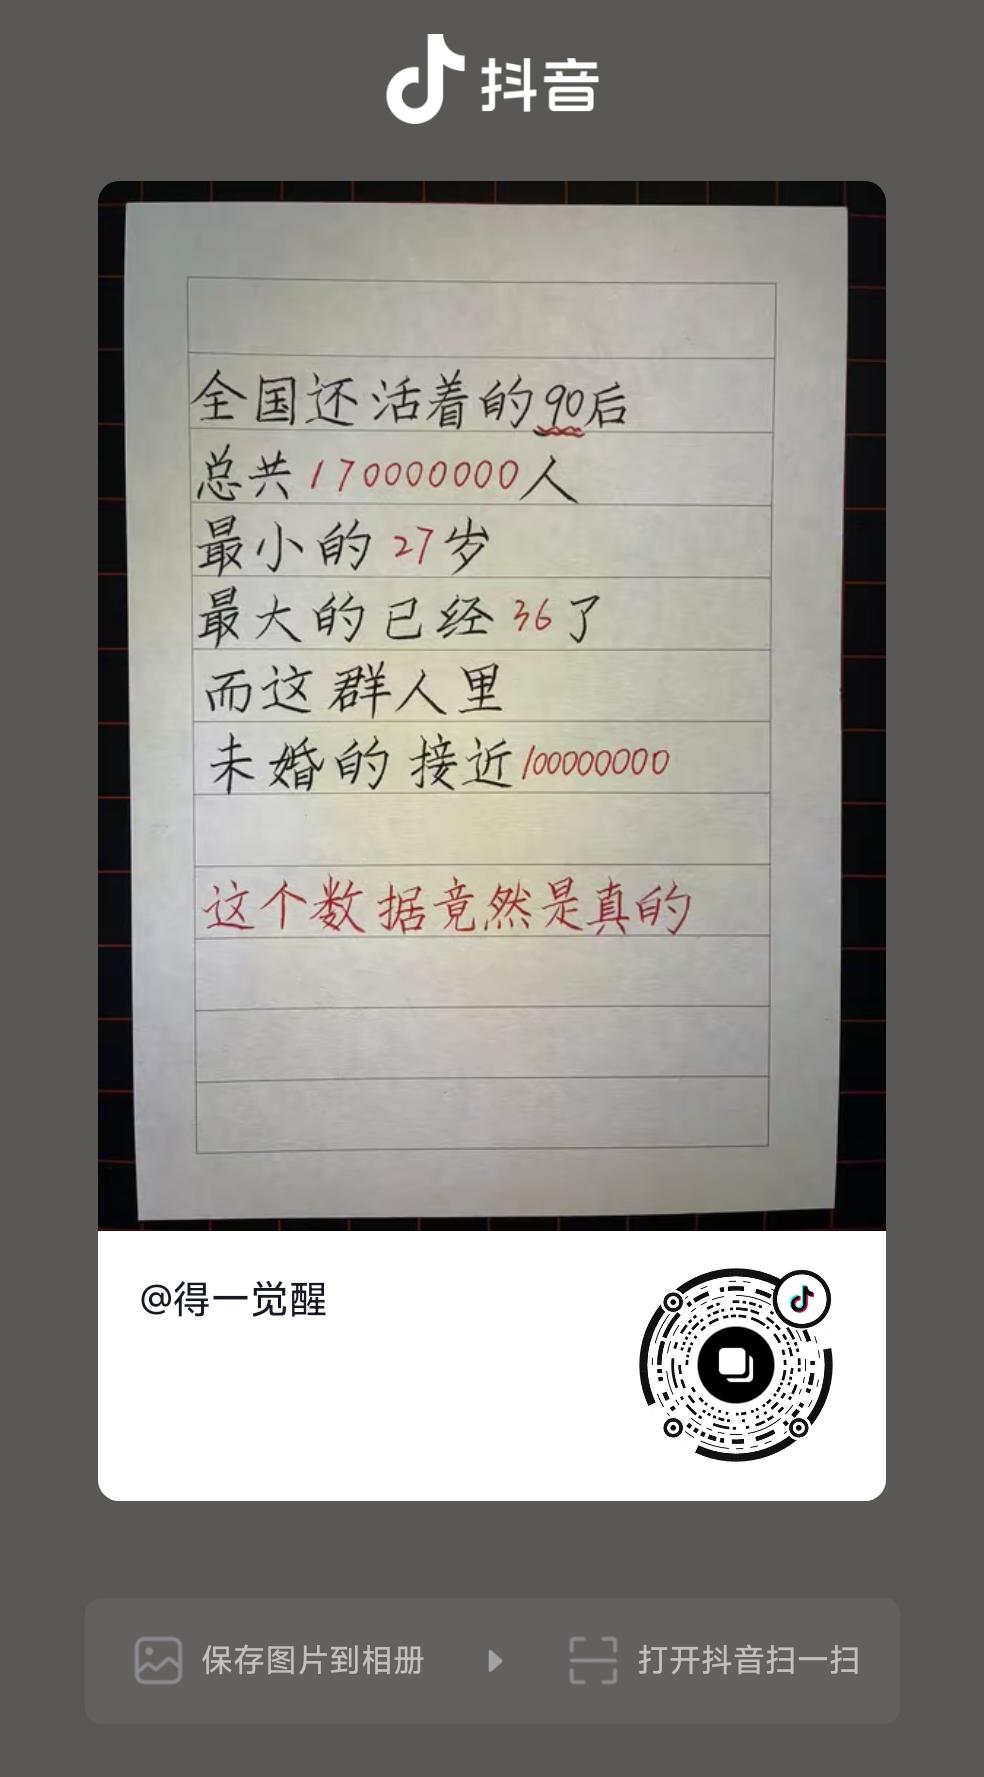 抖音
全国还活着的90后
总共170000000人
最小的27岁
最大的已经36了
而这群人里
未婚的接近100000000
这个数据竟然是真的
@得一觉醒
保存图片到相册
打开抖音扫一扫